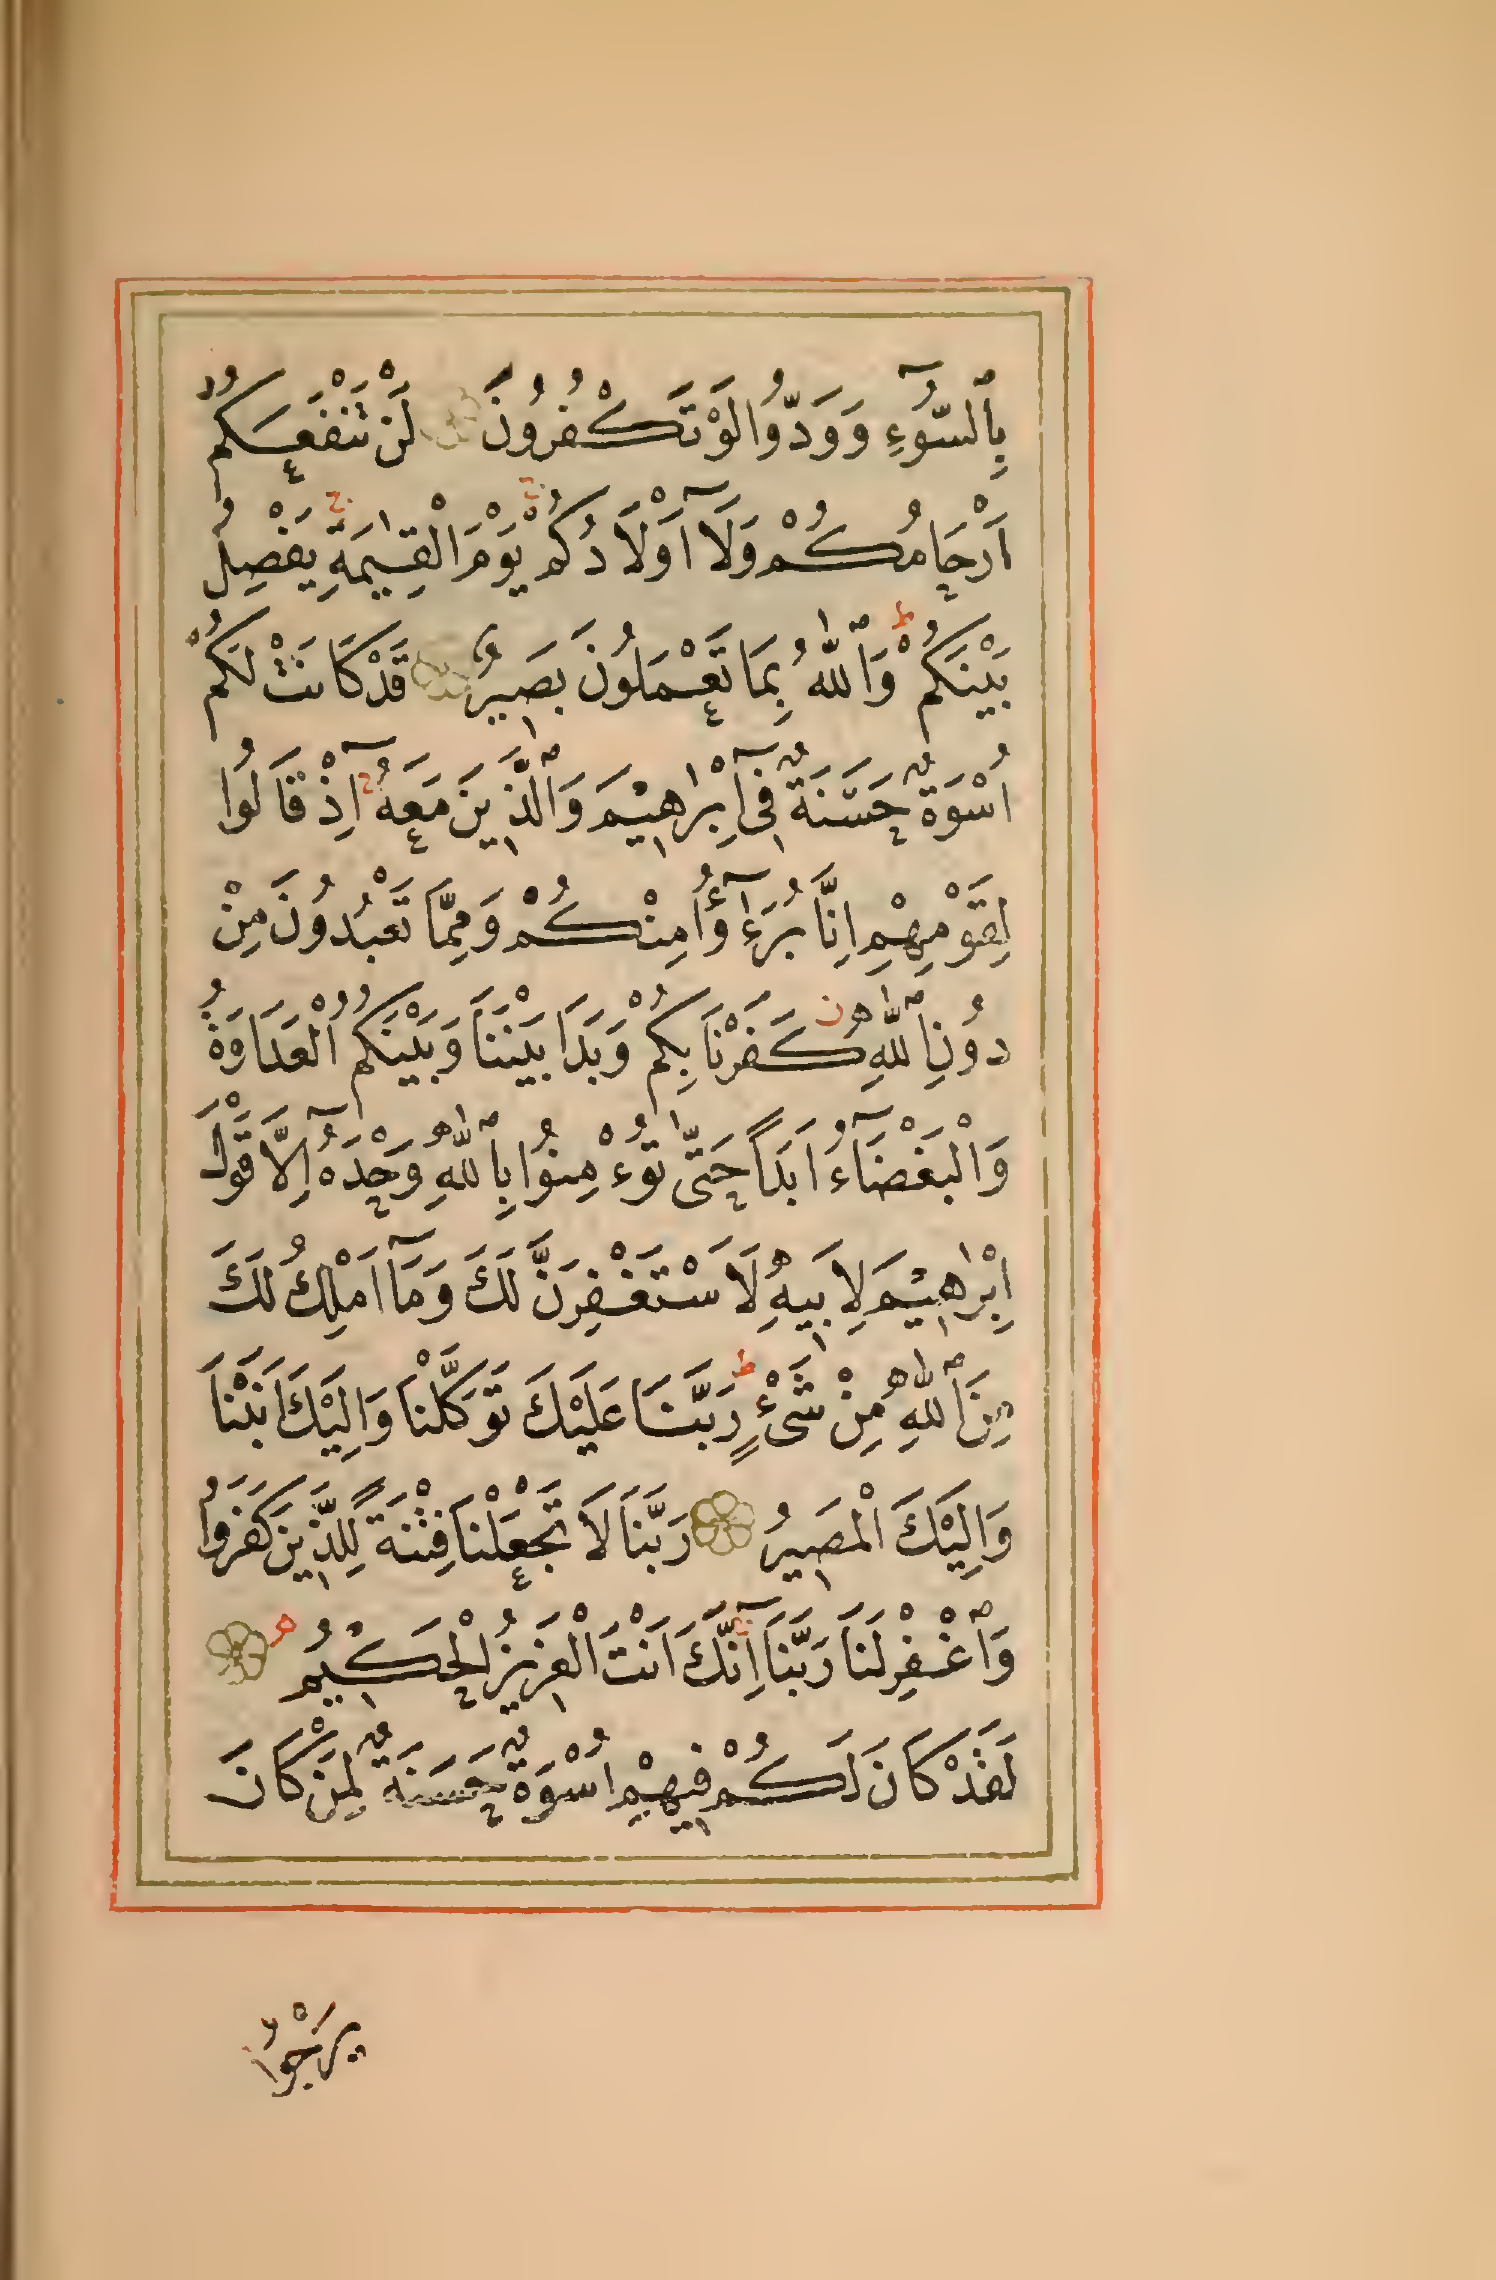 بِٱلسُّوٓءِ وَوَدُّوا لَوْ تَكْفُرُونَ لَنْ تَنْفَعَكُمْ
اَرْحَامُكُمْ وَلَآ اَوْلَادُكُمْ يَوْمَ الْقِيٰمَةِ يَفْصِلُ
بَيْنَكُمْ وَٱللّٰهُ بِمَا تَعْمَلُونَ بَصِيرٌ قَدْ كَانَتْ لَكُمْ
اُسْوَةٌ حَسَنَةٌ فِىٓ اِبْرٰهِيْمَ وَٱلَّذِينَ مَعَهُٓ اِذْ قَالُوا
لِقَوْمِهِمْ اِنَّا بُرَءٰٓؤُا مِنْكُمْ وَمِمَّا تَعْبُدُونَ مِنْ
دُونِ ٱللّٰهِ كَفَرْنَا بِكُمْ وَبَدَا بَيْنَنَا وَبَيْنَكُمُ الْعَدَاوَةُ
وَالْبَغْضَآءُ اَبَدًا حَتّٰى تُوءْمِنُوا بِٱللّٰهِ وَحْدَهُٓ اِلَّا قَوْلَ
اِبْرٰهِيْمَ لِاَبِيهِ لَاَسْتَغْفِرَنَّ لَكَ وَمَآ اَمْلِكُ لَكَ
مِنَ ٱللّٰهِ مِنْ شَىْءٍ رَبَّنَا عَلَيْكَ تَوَكَّلْنَا وَاِلَيْكَ اَنَبْنَا
وَاِلَيْكَ الْمَصِيرُ رَبَّنَا لَا تَجْعَلْنَا فِتْنَةً لِلَّذِينَ كَفَرُوا
وَٱغْفِرْ لَنَا رَبَّنَآ اِنَّكَ اَنْتَ الْعَزِيزُ الْحَكِيْمُ
لَقَدْ كَانَ لَكُمْ فِيهِمْ اُسْوَةٌ حَسَنَةٌ لِمَنْ كَانَ
يَرْجُوا